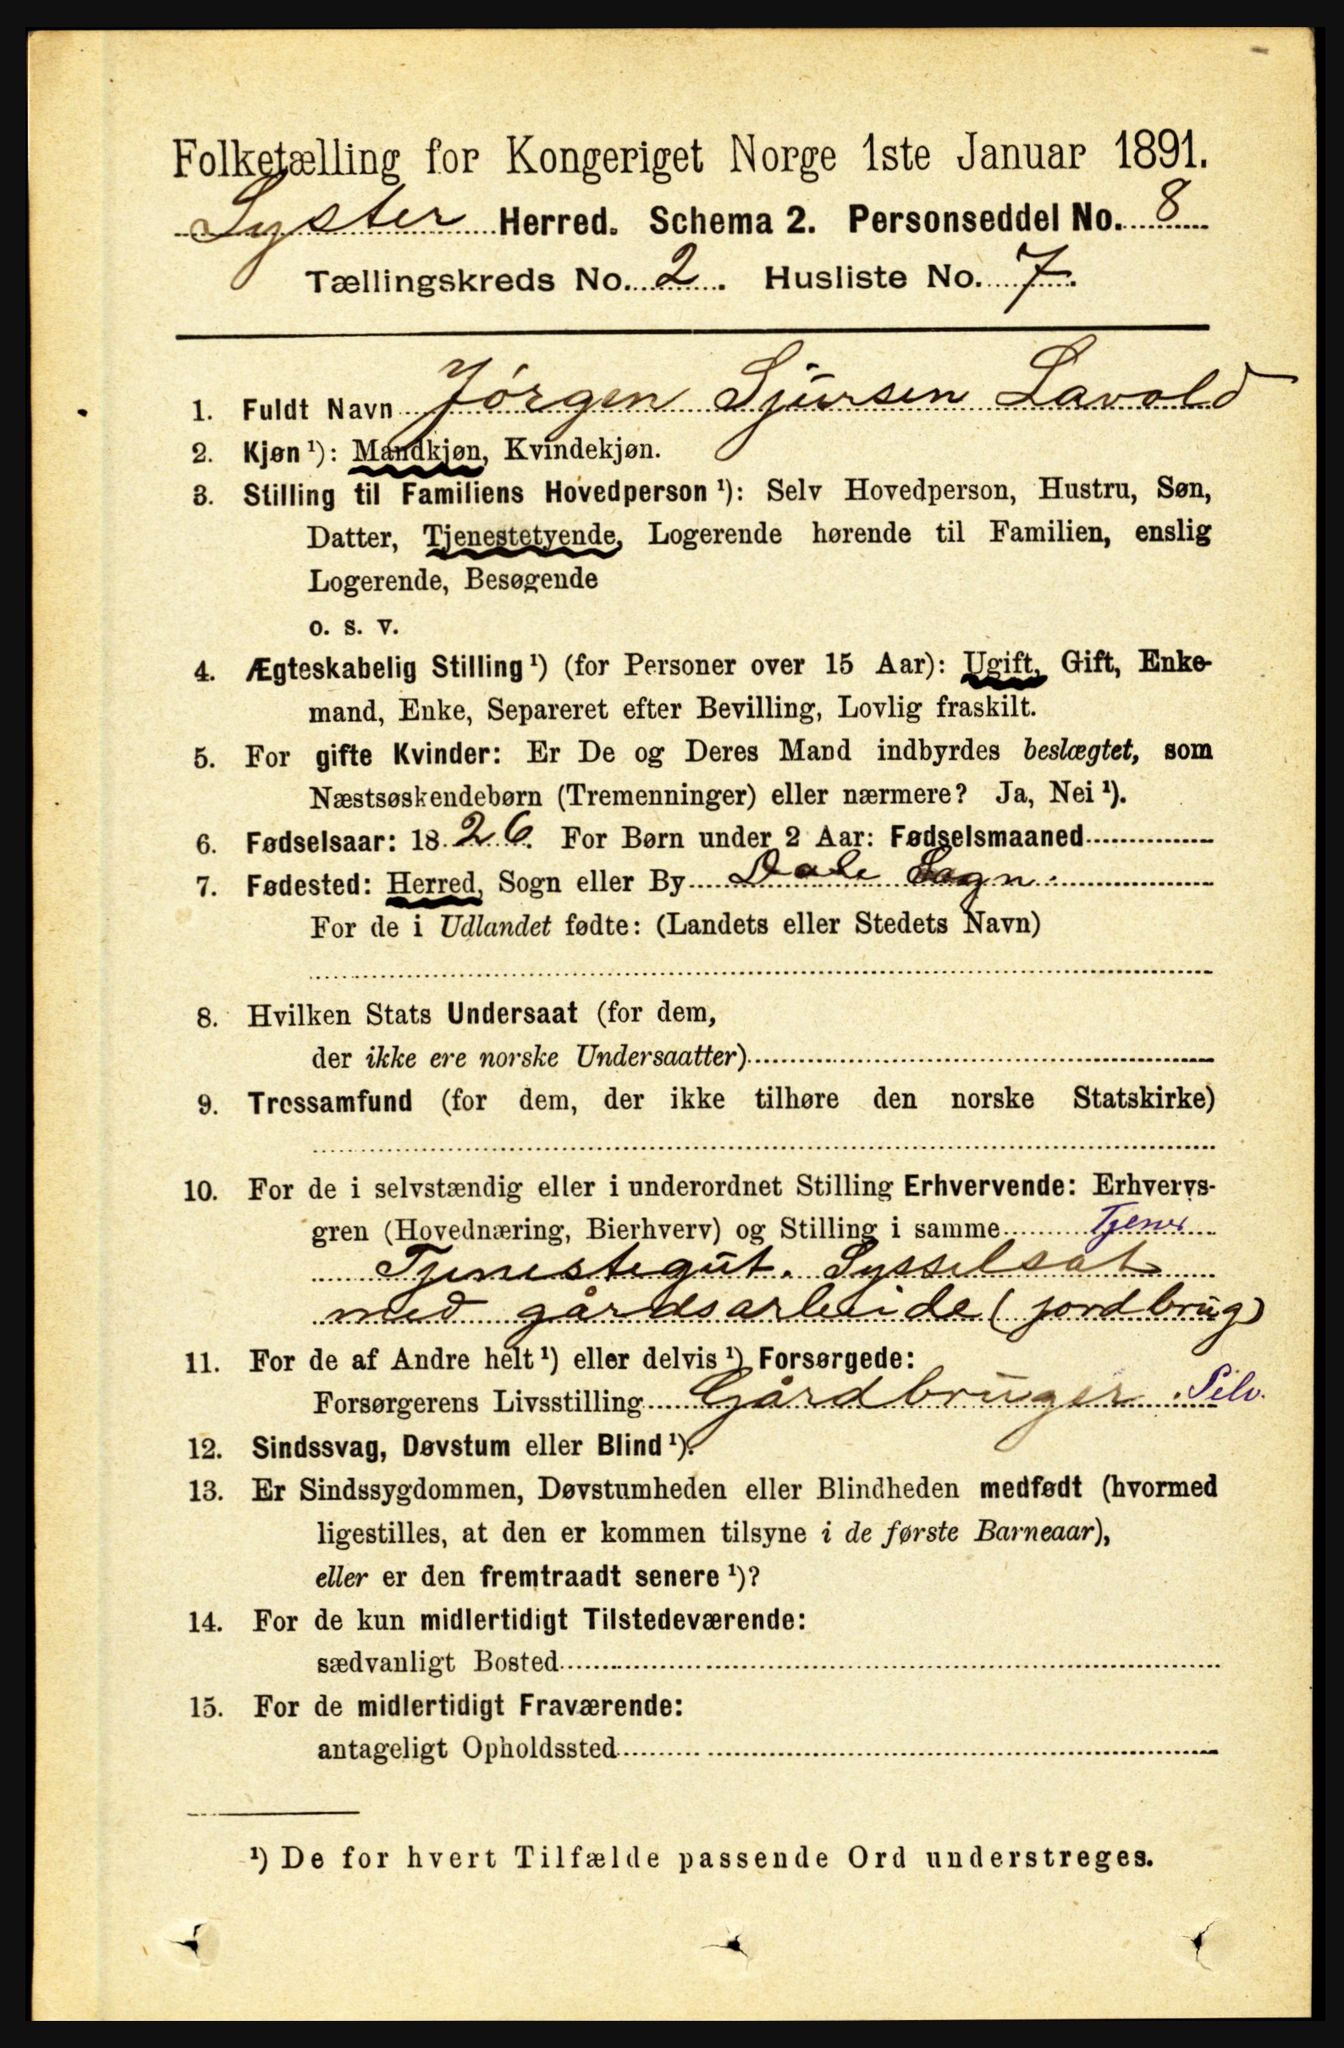 Folketælling for Kongeriget Norge 1ste Januar 1891.
Lyster Herred. Schema 2. Personseddel No. 8
Tællingskreds No. 2. Husliste No. 7.
1. Fuldt Navn Jørgen Sjursen Lavold
2. Kjøn ¹): Mandkjøn, Kvindekjøn.
3. Stilling til Familiens Hovedperson ¹): Selv Hovedperson, Hustru, Søn,
Datter, Tjenestetyende, Logerende hørende til Familien, enslig
Logerende, Besøgende
o. s. v.
4. Ægteskabelig Stilling ¹) (for Personer over 15 Aar): Ugift, Gift, Enke-
mand, Enke, Separeret efter Bevilling, Lovlig fraskilt.
5. For gifte Kvinder: Er De og Deres Mand indbyrdes beslægtet, som
Næstsøskendebørn (Tremenninger) eller nærmere? Ja, Nei ¹).
6. Fødselsaar: 1826. For Børn under 2 Aar: Fødselsmaaned
7. Fødested: Herred, Sogn eller By Dale Sogn.
For de i Udlandet fødte: (Landets eller Stedets Navn)
8. Hvilken Stats Undersaat (for dem,
der ikke ere norske Undersaatter)
9. Trossamfund (for dem, der ikke tilhøre den norske Statskirke)
10. For de i selvstændig eller i underordnet Stilling Erhvervende: Erhvervs-
gren (Hovednæring, Bierhverv) og Stilling i samme Tjener
Tjenestegut. Sysselsat
med gårdsarbeide (jordbrug)
11. For de af Andre helt ¹) eller delvis ¹) Forsørgede:
Forsørgerens Livsstilling Gårdbruger. Selv.
12. Sindssvag, Døvstum eller Blind ¹).
13. Er Sindssygdommen, Døvstumheden eller Blindheden medfødt (hvormed
ligestilles, at den er kommen tilsyne i de første Barneaar),
eller er den fremtraadt senere ¹)?
14. For de kun midlertidigt Tilstedeværende:
sædvanligt Bosted
15. For de midlertidigt Fraværende:
antageligt Opholdssted
¹) De for hvert Tilfælde passende Ord understreges.